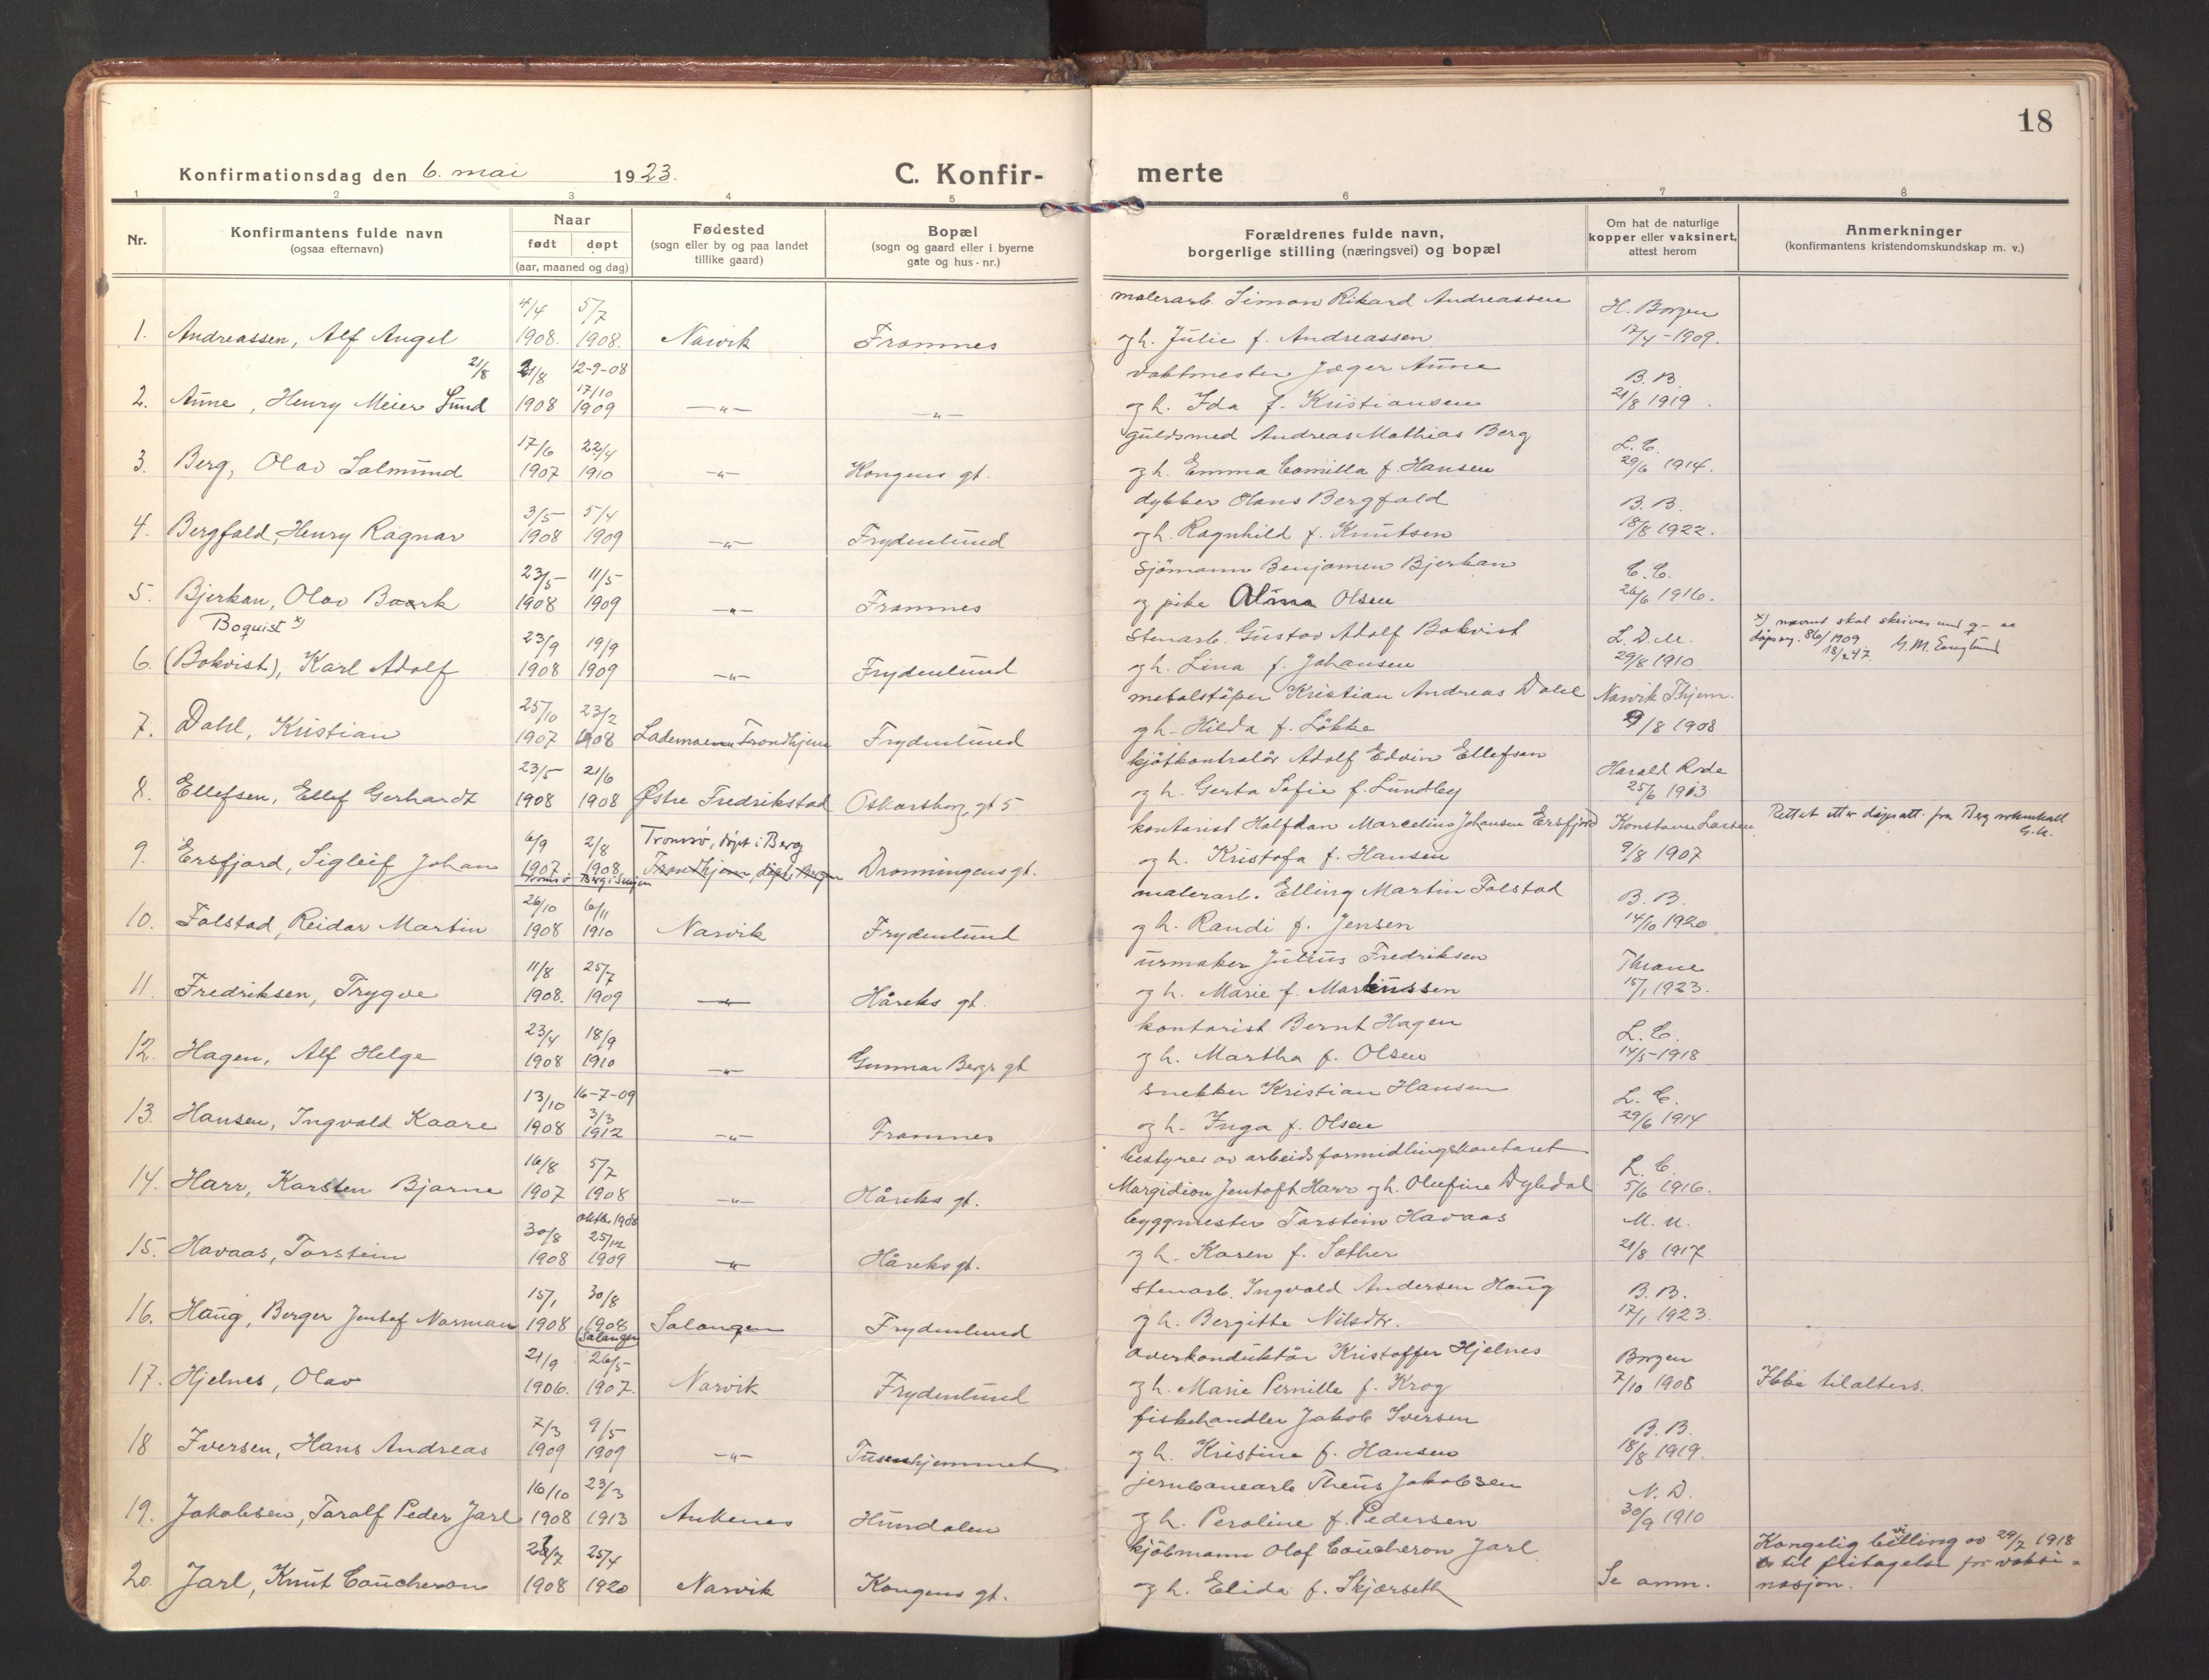 18
Konfirmationsdag den 6. mai 1923.
C. Konfir- merte
1 2 3 4 5 6 7 8
Nr.
Konfirmantens fulde navn
(ogsaa efternavn)
Naar
født døpt
(aar, maaned og dag)
Fødested
(sogn eller by og paa landet
tillike gaard)
Bopæl
(sogn og gaard eller i byerne
gate og hus-nr.)
Forældrenes fulde navn,
borgerlige stilling (næringsvei) og bopæl
Om hat de naturlige
kopper eller vaksinert,
attest herom
Anmerkninger
(konfirmantens kristendomskundskap m. v.)
4/4 5/7 malerarb. Simon Rikard Andreassen H. Borgen
1. Andreassen, Alf Angel 1908. 1908. Narvik Framnes og h. Julie f. Andreassen 17/4-1909.
21/8 21/8 12-9-08 17/10 vaktmester Jæger Aune B. B.
2. Aune, Henry Meier Sund 1908 1909 —"— —"— og h. Ida f. Kristiansen 21/8 1919.
17/6 22/4 guldsmed Andreas Mathias Berg L. C.
3. Berg, Olav Salmund 1907 1910 —"— Kongens gt. og h. Emma Camilla f. Hansen 29/6 1914.
3/5 5/4 dykker Hans Bergfald B. B.
4. Bergfald, Henry Ragnar 1908 1909 —"— Frydenlund og h. Ragnhild f. Knutsen 18/8 1922.
23/5 11/5 sjömann Benjamen Bjerkan C. C.
5. Bjerkan, Olav Baark 1908 1909 —"— Framnes og pike Alma Olsen 26/6 1916.
Boquist x) 23/9 19/9 stenarb. Gustav Adolf Bokvist L. D. M. x) navnet skal skrives med q - se
6. (Bokvist), Karl Adolf 1908 1909 —"— Frydenlund og h. Lina f. Johansen 29/8 1910 döpsreg. 86/1909 18/2 47. G. M. Englund
25/10 23/2 metalstöper Kristian Andreas Dahl Narvik Thjem.
7. Dahl, Kristian 1907 1908 Lademoen Trondhjem Frydenlund og h. Hilda f. Lökke 9/8 1908
23/5 21/6 kjötkontrolör Adolf Edvin Ellefsen Harald Rode
8. Ellefsen, Ellef Gerhardt 1908 1908 Østre Fredrikstad Oskarsborg gt 5 og h. Gerta Sofie f. Lundby 25/6 1913
6/9 2/8 Tromsø, döpt i Berg kontorist Halfdan Marcelius Johansen Ersfjord Konstanse Larsen Rettet etter döpsatt. fra Berg
9. Ersfjord, Sigleif Johan 1907 1908 Trondhjem, döpt i Bergen Dronningens gt. og h. Kristofa f. Hansen 9/8 1907
Tromsø Berg i Senjen
26/10 6/11 malerarb. Elling Martin Falstad B. B.
10. Falstad, Reidar Martin 1908 1910 Narvik Frydenlund og h. Randi f. Jensen 14/10 1920
11/8 25/7 urmaker Julius Fredriksen Thrane
11. Fredriksen, Trygve 1908. 1909 —"— Håreks gt. og h. Marie f. Martinussen 15/1 1923.
23/4 18/9 kontorist Bernt Hagen L. C.
12. Hagen, Alf Helge 1908 1910 —"— Gunnar Bergs gt og h. Martha f. Olsen 14/5-1918
13/10 16-7-09 3/3 snekker Kristian Hansen L. C.
13. Hansen, Ingvald Kaare 1908 1912 —"— Framnes og h. Inga f. Olsen 29/6 1914
16/8 5/7 bestyrer av arbeidsformidlingskontoret L. C.
14. Harr, Karsten Bjarne 1907 1908 —"— Håreks gt. Margidion Jentoft Harr og h. Olufine Dybdal 5/6 1916.
30/8 oktbr 1908 25/12 byggmester Torstein Havaas M. U.
15. Havaas, Torstein 1908 1909 —"— Håreks gt. og h. Karen f. Sæther 21/8 1917
15/1 30/8 stenarb. Ingvald Andersen Haug B. B.
16. Haug, Berger Jentof Norman 1908 1908 Salangen Frydenlund og h. Bergitte Nilsdtr. 17/1 1923.
Salangen
21/9 26/5 overkonduktör Kristoffer Hjelnes Borgen
17. Hjelnes, Olav 1906. 1907. Narvik Frydenlund og h. Marie Pernille f. Krog 7/10 1908 Ikke tilalters.
7/3 9/5 fiskehandler Jakob Iversen B. B.
18 Iversen, Hans Andreas 1909 1909 —"— Tusenhjemmet og h. Kristine f. Hansen 18/8 1919.
16/10 23/3 jernbanearb Theus Jakobsen N. D.
19. Jakobsen, Toralf Peder Jarl 1908 1913 Ankenes Hundalen og h. Peroline f. Pedersen 30/9 1910
28/7 25/4 kjöbmann Olof Coucheron Jarl Kongelig bevilling av 29/7 1918
20. Jarl, Knut Coucheron 1908 1920 Narvik Kongens gt. og h. Elida f. Skjærseth Se anm. til fritagelse for vaksinasjon.